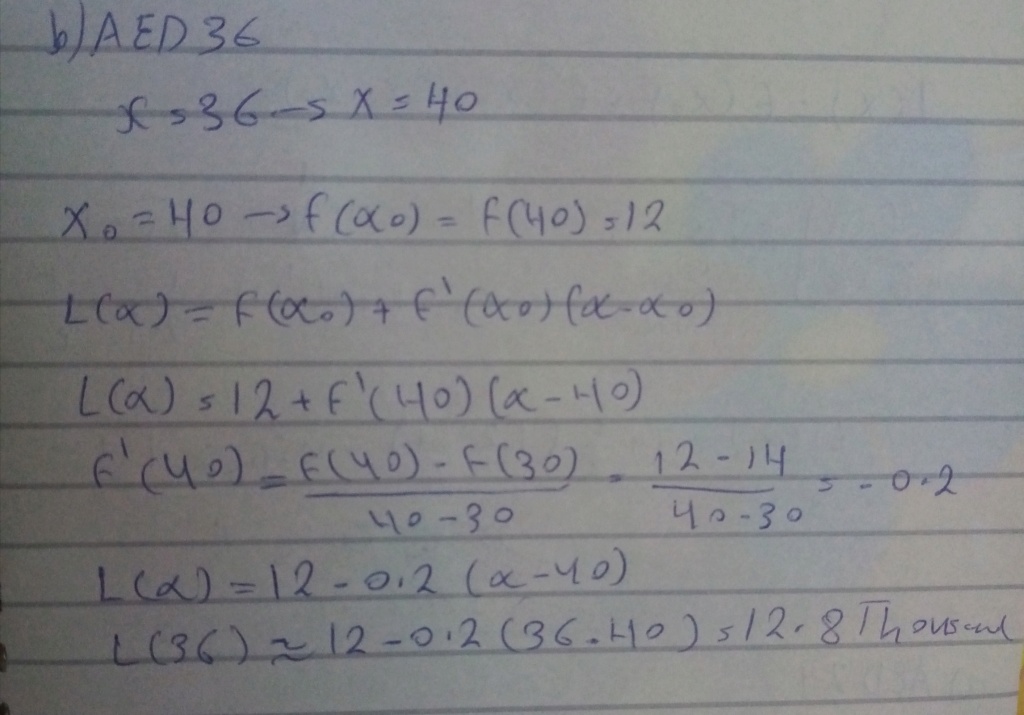 b) AED 36
x = 36 → x = 40
x₀ = 40 → f(x₀) = f(40) = 12
L(x) = f(x₀) + f'(x₀)(x-x₀)
L(x) = 12 + f'(40)(x-40)
f'(40) = f(40) - f(30) / 40-30 = 12-14 / 40-30 = -0.2
L(x) = 12 - 0.2 (x-40)
L(36) ≈ 12-0.2(36-40) = 12.8 Thousand